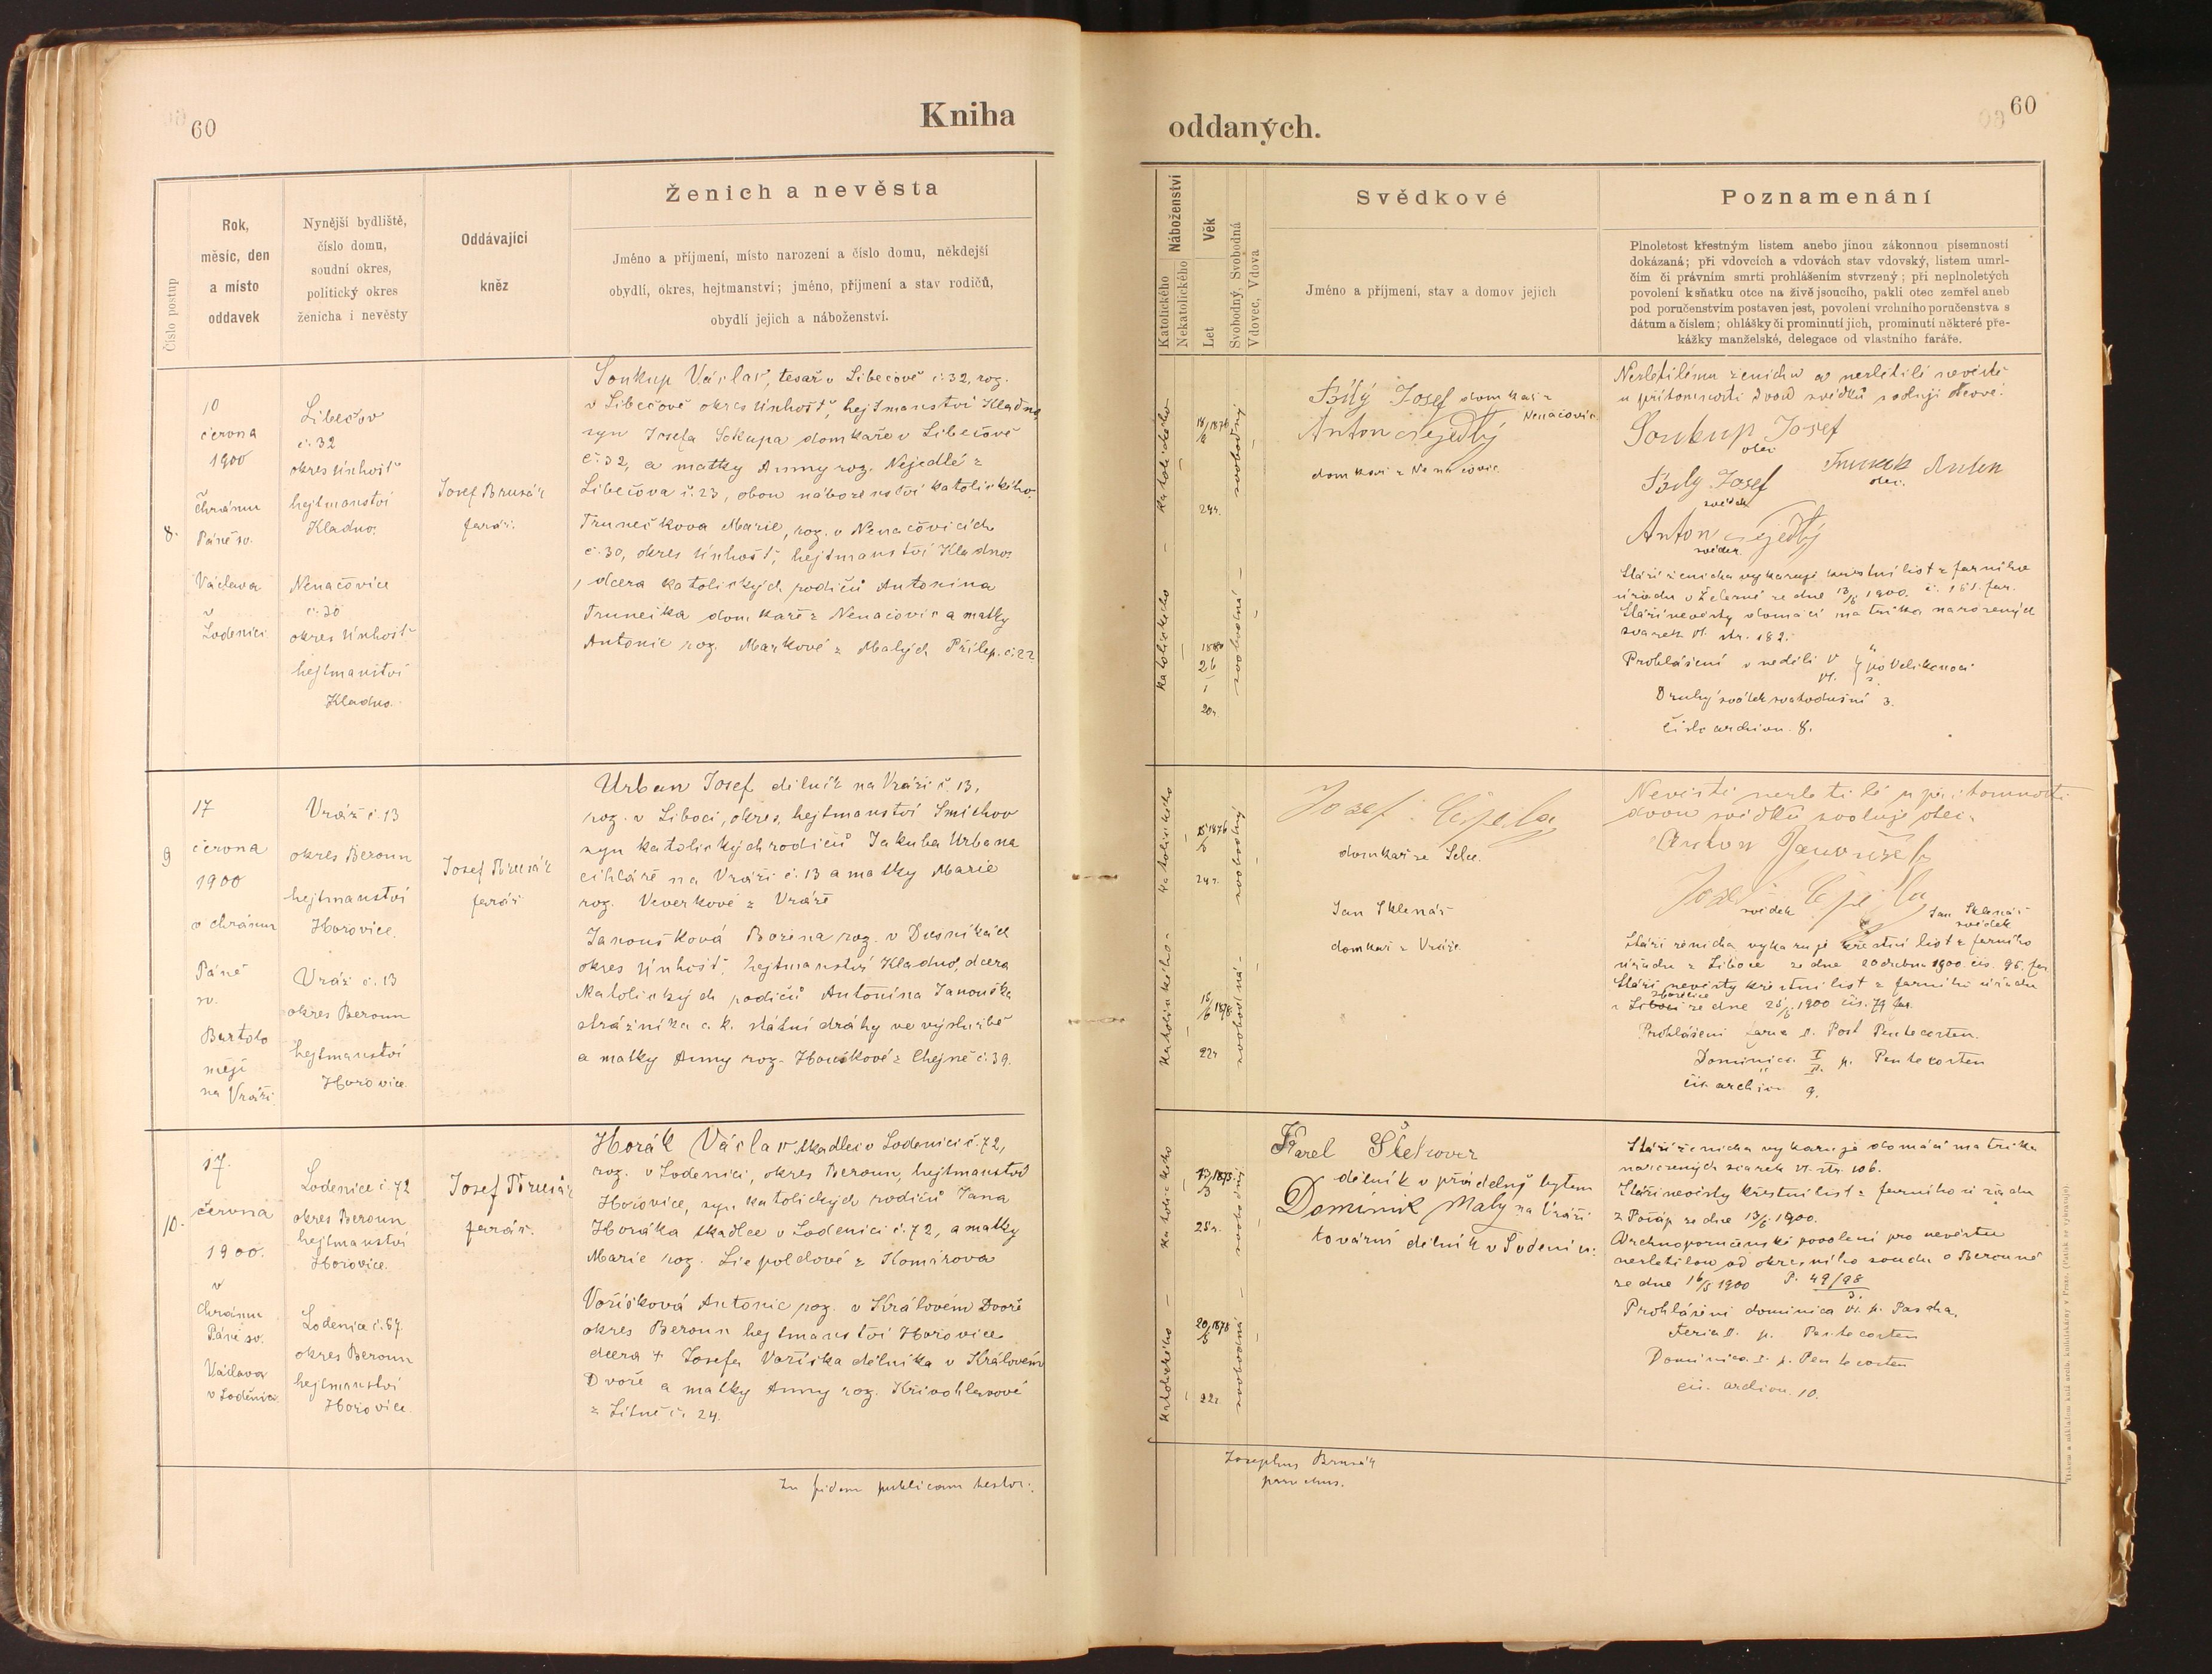 60
Kniha
Číslo postup
Rok,
měsíc, den
a místo
oddavek
Nynější bydliště,
číslo domu,
soudní okres,
politický okres
ženicha i nevěsty
Oddávající
kněz
Ženich a nevěsta
Jméno a příjmení, místo narození a číslo domu, někdejší
obydlí, okres, hejtmanství; jméno, příjmení a stav rodičů,
obydlí jejich a náboženství.
8.
10
června
1900
Chrámu
Páně sv.
Václava
v
Lodenici
Libečov
č. 32
okres Unhošť
hejtmanství
Kladno.
Nenačovice
č. 30
okres Unhošť
hejtmanství
Kladno.
Josef Brusák
farář.
Soukup Václav, tesař v Libečově č. 32, roz.
v Libečově okres Unhošť, hejtmanství Kladno,
syn Josefa Soukupa domkaře v Libečově
č. 32, a matky Anny roz. Nejedlé z
Libečova č. 23, obou náboženství katolického.
Trunečkova Marie, roz. v Nenačovicích
č. 30, okres Unhošť, hejtmanství Kladno
, dcera katolických rodičů Antonína
Trunečka domkaře z Nenačovic a matky
Antonie roz. Markové z Malých Přílep. č. 22
9
17
června
1900
v chrámu
Páně
sv.
Bartolo
měje
na Vráži.
Vráž č. 13
okres Beroun
hejtmanství
Hořovice.
Vráž č. 13
okres Beroun
hejtmanství
Hořovice
Josef Brusák
farář
Urban Josef dělník na Vráži č. 13,
roz. v Liboci, okres, hejtmanství Smíchov
syn katolických rodičů Jakuba Urbana
cihláře na Vráži č. 13 a matky Marie
roz. Veverkové z Vráže
Janoušková Božena roz. v Dušníkách
okres Unhošť, hejtmanství Kladno, dcera
katolických rodičů Antonína Janouška
strážníka c. k. státní dráhy ve výslužbě
a matky Anny roz. Houškové z Chejně č. 39.
10.
17.
června
1900.
v
chrámu
Páně sv.
Václava
v Loděnici.
Lodenice č. 72
okres Beroun
hejtmanství
Hořovice.
Lodenice č. 67
okres Beroun
hejtmanství
Hořovice.
Josef Brusák
farář.
Horák Václav tkadlec v Lodenici č. 72,
roz. v Lodenici, okres Beroun, hejtmanství
Hořovice, syn katolických rodičů Jana
Horáka tkadlce v Lodenici č. 72, a matky
Marie roz. Liepoldové z Komárova
Voříšková Antonie roz. v Králověm Dvoře
okres Beroun hejtmanství Hořovice
dcera + Josefa Voříška dělníka v Královém
Dvoře a matky Anny roz. Křivohlavové
z Litně č. 24.
In fidem publicam testor:
60
oddaných.
Náboženství
Katolického
Nekatolického
Věk
Let
Svobodný, Svobodná
Vdovec, Vdova
Svědkové
Jméno a příjmení, stav a domov jejich
Poznamenání
Plnoletost křestným listem anebo jinou zákonnou písemností
dokázaná; při vdovcích a vdovách stav vdovský, listem umrl-
čím či právním smrti prohlášením stvrzený; při neplnoletých
povolení k sňatku otce na živě jsoucího, pakli otec zemřel aneb
pod poručenstvím postaven jest, povolení vrchního poručenstva s
dátum a číslem; ohlášky či prominutí jich, prominutí některé pře-
kážky manželské, delegace od vlastního faráře.
katolického
1876
24 r.
svobodný
katolického
1880
26
1
20 r.
svobodná
Bílý Josef domkař z
Nenačovic
Anton Nejedlý
domkař z Nenačovic.
Nezletilému ženichu a nezletilé nevěstě
u přítomnosti dvou svědků svolují otcové:
Soukup Josef
otec
Truneček Anton
otec.
Bílý Josef
svědek
Anton Nejedlý
svědek
Stáří ženicha vykazuje křestní list z farního
úřadu v Železné ze dne 13/5 1900. č. 151. far.
Stáří nevěsty domácí matrika narozených
svazek VI. str. 182.
Prohlášení v neděli V
VI. po Velikonoci
Druhý svátek svatodušní 3.
číslo archivu 8.
katolického
15 1876
24 r.
svobodný
katolického
15/6 1878
22 r
svobodná
Josef Čepela
domkař ze Selce.
Jan Sklenář
domkař z Vráže.
Nevěstě nezletilé u přítomnosti
dvou svědků svoluje otec.
Anton Janoušek
Josef Čepela
svědek
Jan Sklenář
svědek
Stáří ženicha vykazuje křestní list z farního
úřadu z Liboce ze dne 20 dubna 1900. čís. 95. far
Stáří nevěsty křestní list z farního úřadu
ze dne 25/5 1900 čís. 77 far.
Prohlášení feria II. Post Pentecosten.
Dominica I p. Pentecosten
II.
čís. archiv. 9.
katolického
1875
25 r.
svobodný
katolického
20/5 1878
22 r.
svobodná
Karel
dělník v přádelně bytem
na Vráži
Dominik Malý
tovární dělník v Lodenici.
Stáří ženicha vykazuje domácí matrika
narozených svazek VI. str. 106.
Stáří nevěsty křestní list z farního úřadu
z Počáp ze dne 13/5 1900.
Vrchnoporučenské povolení pro nevěstu
nezletilou od okresního soudu v Berouně
ze dne 16/5 1900 P. 49/98
3.
Prohlášení dominica VI. p. Pascha.
Feria II. p. Pentecosten
Dominica I. p. Pentecosten
čís. archivu 10.
Josephus Brusák
parochus.